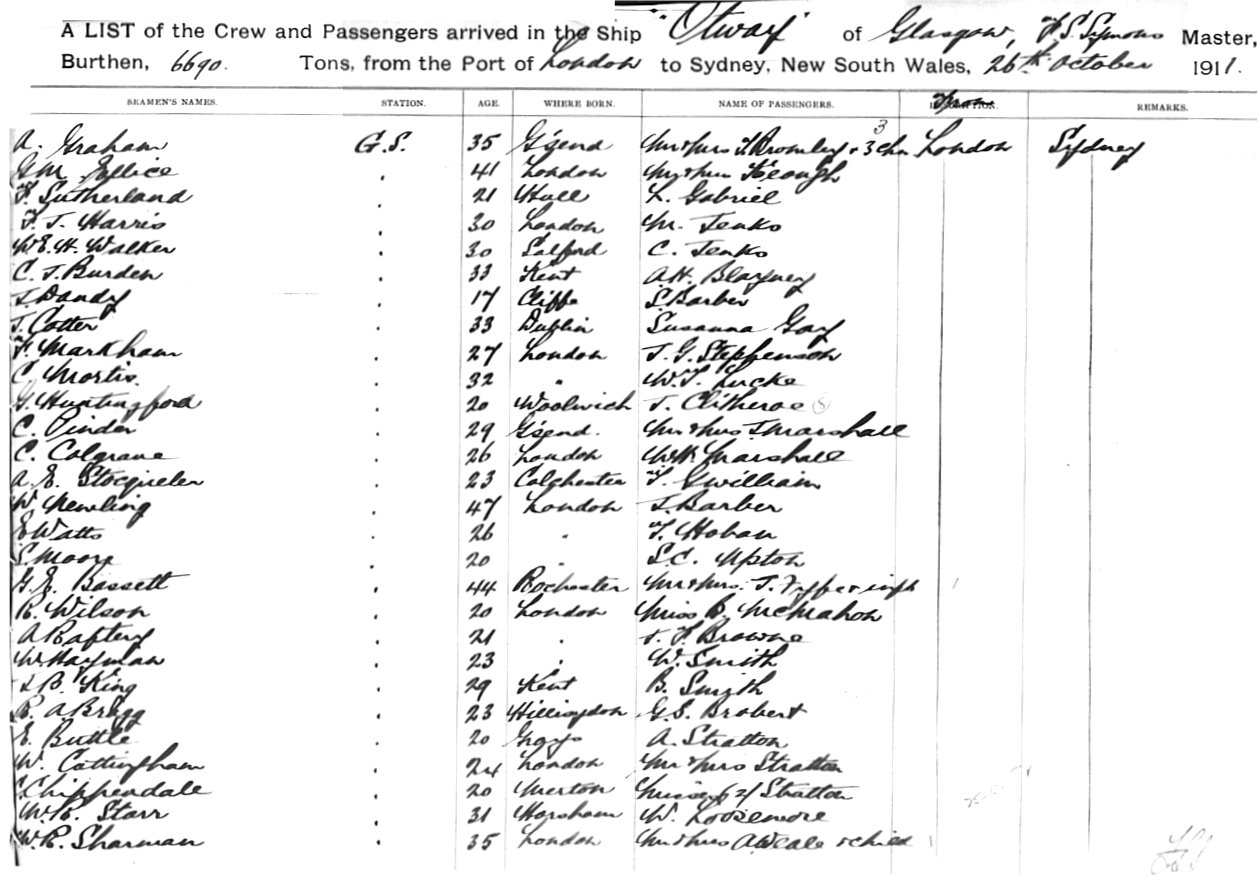 A LIST of the Crew and Passengers arrived in the Ship "Otway" of Glasgow, F. S. Symons Master,
Burthen, 6690. Tons, from the Port of London to Sydney, New South Wales, 26th October 1911.
SEAMEN'S NAMES. STATION. AGE. WHERE BORN. NAME OF PASSENGERS. From REMARKS.
3
A. Graham G.S. 35 G'send Mr & Mrs Bromley & 3 chn London Sydney
G M Ellice " 41 London Mr & Mrs Keough
F. Sutherland " 21 Hull L. Gabriel
F. J. Harris " 30 London M. Jenks
W. E. H. Walker " 30 Salford C. Jenks
C. J. Burden " 33 Kent A. H. Blayney
Dandy " 17 Cliffe S. Barber
J. Cotter " 33 Dublin Susanna Gay
F. Markham " 27 London J. G. Stephenson
C. Mortis " 32 " W. J. Lucke
G. Huntingford " 20 Woolwich J. Clitheroe
C. Pinder " 29 G'send. Mr & Mrs J. Marshall
C. Colgrave " 26 London W. H. Marshall
A. E. Stocqueler " 23 Colchester F. Gwilliam
W. Newling " 47 London J. Barber
E Watts " 26 " F. Hoban
S. Moore " 20 " S. C. Upton
G. E. Bassett " 44 Rochester Mr & Mrs. J. & inft
R. Wilson " 20 London Miss B. McMahon
A Raftery " 21 " F. Browne
W. Hayman " 23 " W. Smith
King " 29 Kent B. Smith
R. A Bragg " 23 Hillingdon G. S. Brobert
E. Buttle " 20 Grays A. Stratton
W. Cottingham " 24 London Mr & Mrs Stratton
C. Chippendale " 20 Merton Misses Stratton
W. R. Starr " 31 Horsham W. Loosemore
W. R. Sharman " 35 London Mr & Mrs A. Weale & child